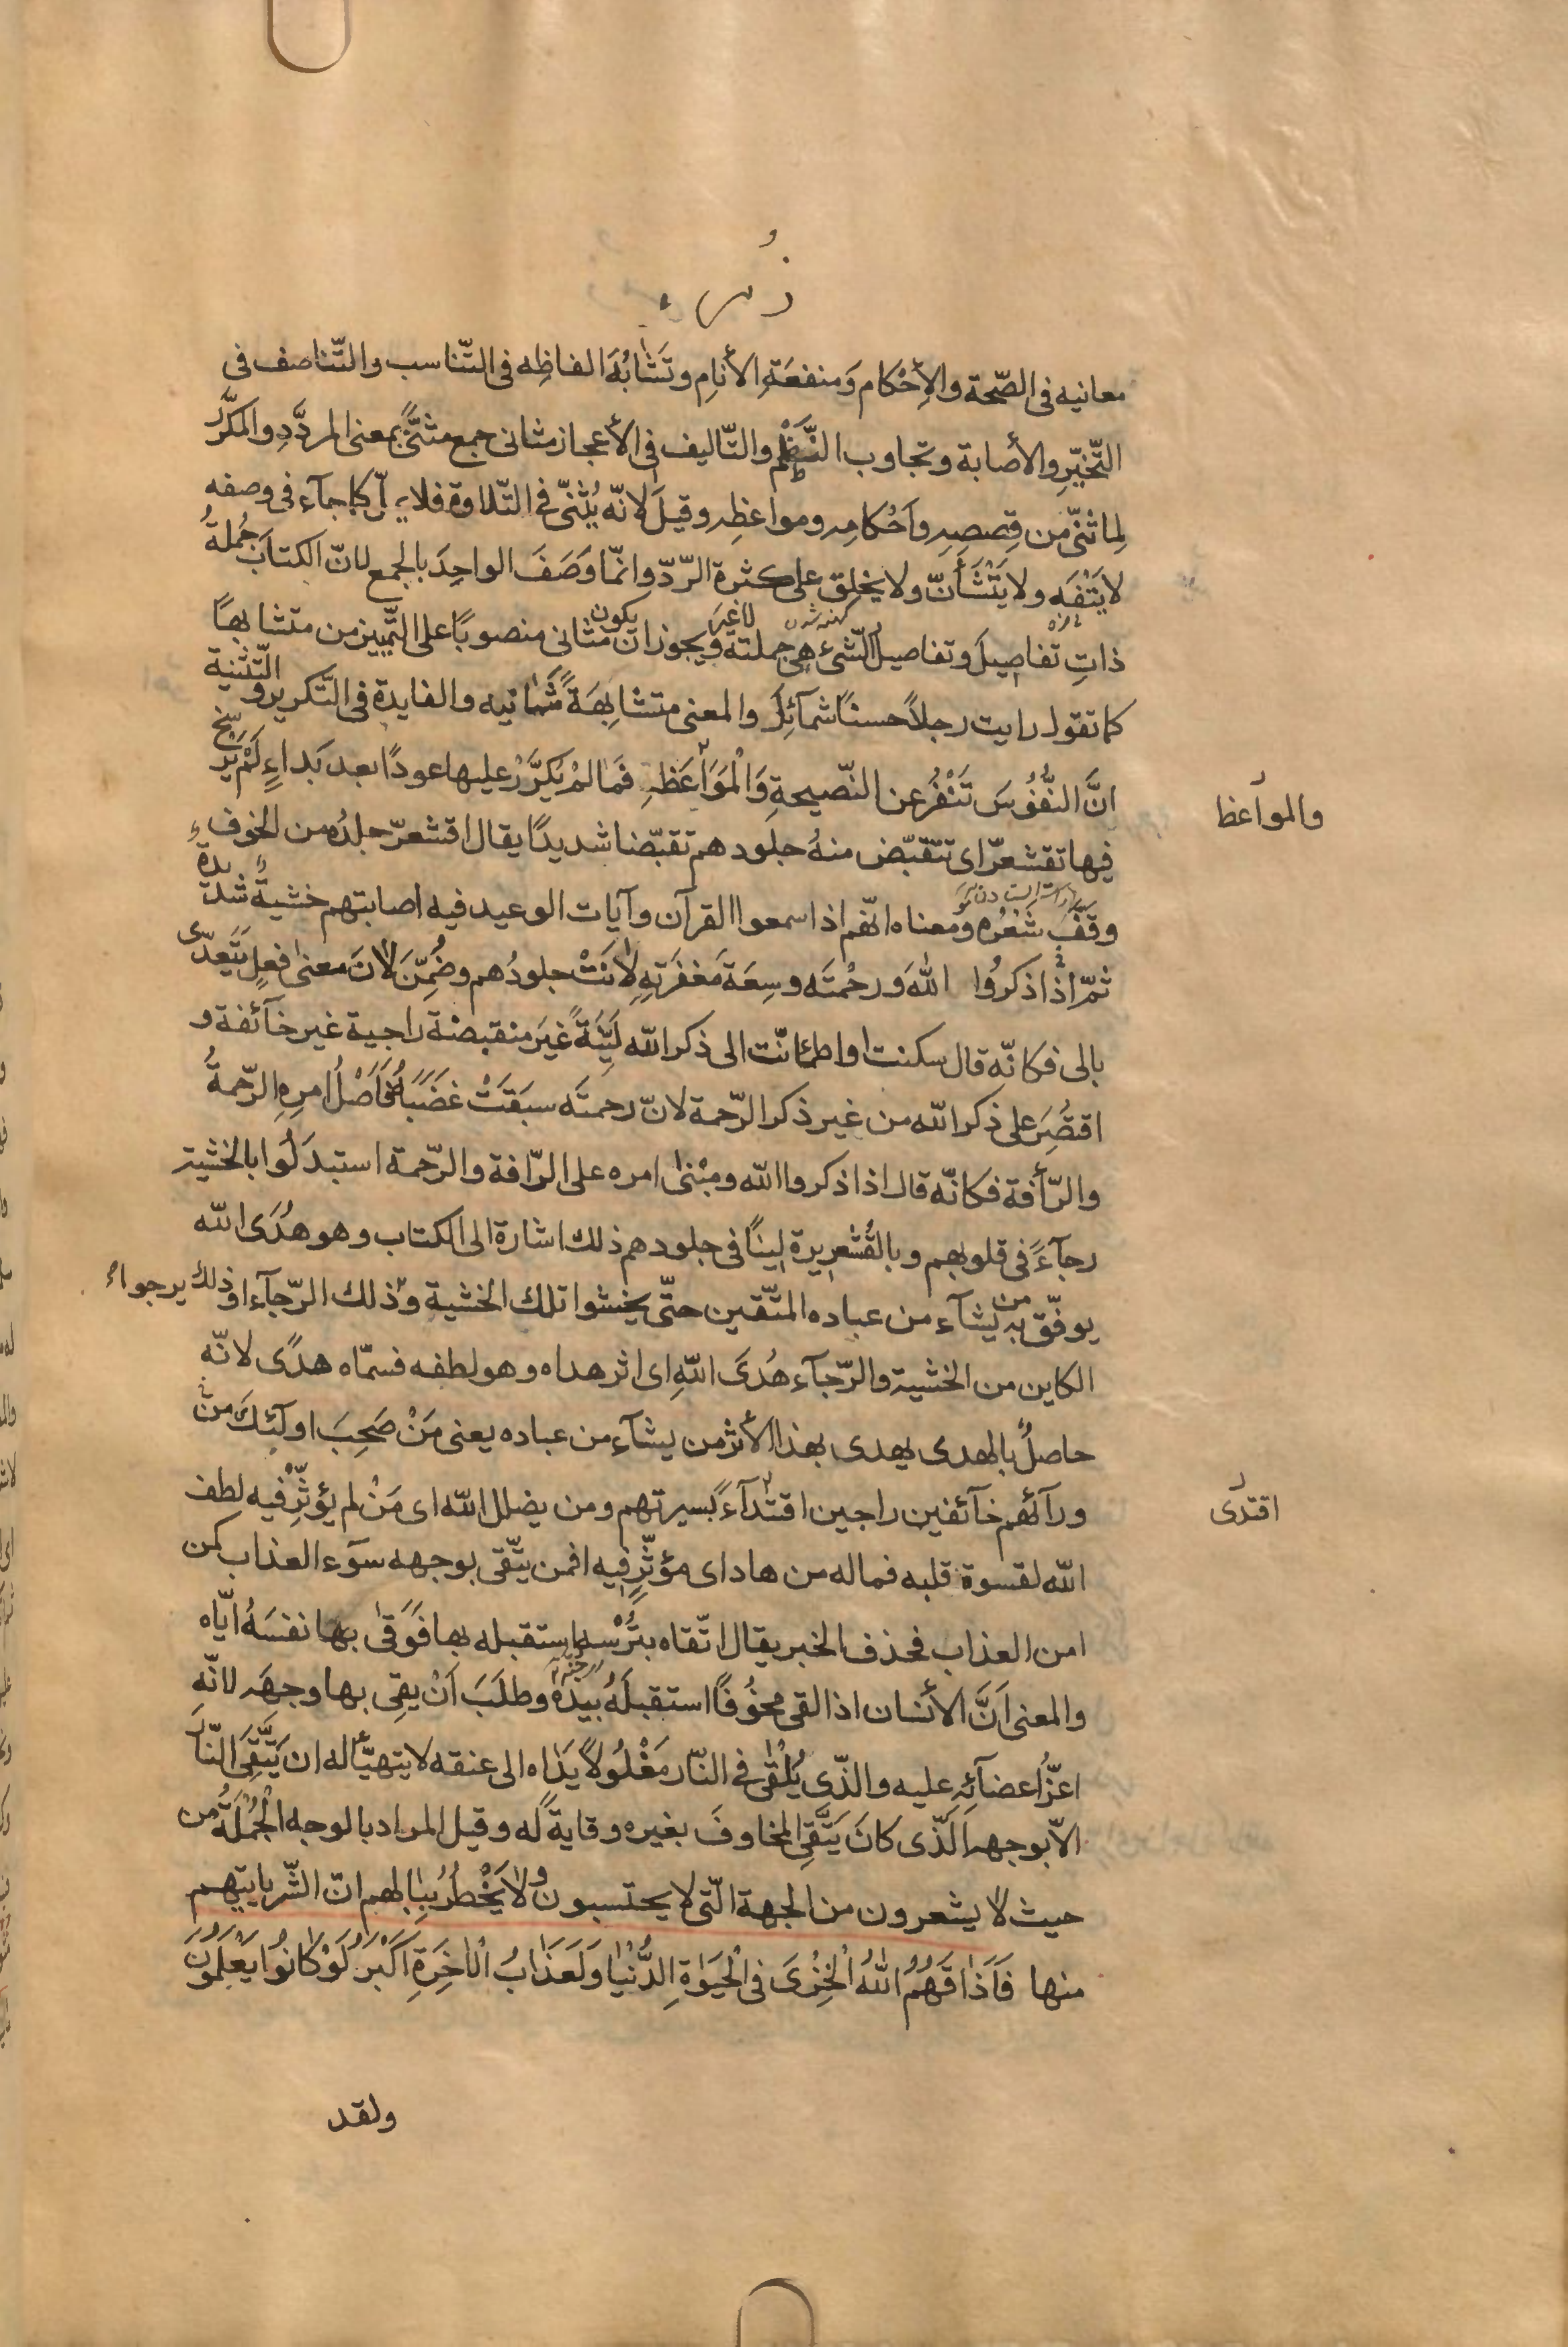 زمر
معانيه فى الصّحة والأِحْكام وَمنفعَةِ الأنامِ وتَشابُهَ الفاظِه فى التّناسب والتّناصف فى
التّخيّرِ والأصابة وتجاوب النّظم والتّاليف فى الأعجاز مثانى جمع مثنًّى بمعنى المردَّدِ والمكرَّر
لِما ثنّى من قِصصِهِ وأحْكامِهِ ومواعظِهِ وقيلَ لانّه يُثنّى فى التّلاوة فلا يملّ كما جآء فى وصفه
لا يَتْفَه ولا يَتْشَأنّ ولا يخلق على كثرة الرّدّ وانّما وَصَفَ الواحِدَ بالجمع لانّ الكتابَ جُملةُ
تازه كهنه شدن لاغير يكون
ذاتِ تفاصِيلَ وتفاصيلُ الشّئِ هى جملته ويجوز ان مثانى منصوبًا على التّمييز من متشابهًا
كما تقول رايت رجلاً حسنًا شمآئِلَ والمعنى متشابِهَةً مَثانيه والفايدة فى التّكرير والتّثنية
انَّ النُّفُوسَ تَنْفُرُ عن النّصيحةِ وَالْمَوَاعَظِ فَمَا لمْ يُكرَّرْ عليها عودًا بعد بَداءٍ لَمْ يَرْسخ
والمواعظ
فيها تقشعرّ اى تتقبّض منهُ جلودهم تقبّضا شديدًا يقال اقشعرّ جلدُه من الخوف
وقفّ شَعْرُه ومعناه انّهم اذا سمعوا القرآن وآيات الوعيد فيه اصابتهم خشيةً شديدة
ثمّ اذا ذكرُوا اللهَ ورحْمتَه وسِعَةَ مَغفَرَتِهِ لانَتْ جلودُهم وضُمِّنَ لانَ معنى فعلٍ يَتَعدّى
بالى فكانّه قال سكنت او اطمانّت الى ذكر الله لَيّنَةً غَيرَ منقبضة راجية غير خآئفة و
اقتُصِرَ على ذكر الله من غير ذكر الرّحمة لانّ رحمتَه سبَقَتْ غضَبَهُ فَأَصْلُ امرِهِ الرّحمةُ
والرّأفة فكانّه قال اذا ذكروا الله ومبْنى امره على الرّافة والرّحمة استبدَلُوا بالخشية
رجآءً فى قلوبهم وبالقُشعريرة لينًا فى جلودهم ذلك اشارة الى الكتاب وهو هُدَى الله
يوفّق به من يشآء من عباده المتّقين حتّى يخشوا تلك الخشية وذلك الرّجآء او ذلك يرجوا
الكاين من الخشية والرّجآء هُدَى اللهِ اى اثر هداه وهو لطفه فسمّاه هدًى لانّه
حاصلٌ بالهدى يهدى بهذا الأثر من يشآء من عباده يعنى مَنْ صَحِبَ اولٓئك من
ورآئهم خآئفين راجين اقتدآءً بسيرتهم ومن يضلل الله اى مَنْ لم يؤثِّرْ فيه لطف
اقتدى
الله لقسوة قلبه فماله من هاد اى مؤثِّرٍ فيه افمن يتّقى بوجهه سوٓء العذاب كمن
امن العذاب فحذف الخبر يقال اتّقاه بتُرْسِه استقبله بها فَوَقى بها نفسَهُ ايّاه
والمعنى اَنَّ الأنسان اذا لقى مخوُفًا استقبلَهُ بيده وطلَبَ اَنْ يقِى بها وجهَه لانّه
اعزُّ اعضآئِهِ عليه والذّى يُلْقى فى النّار مَغْلُولاً يَدَاه الى عنقه لا يتهيّأ له ان يَتَّقِىَ النّارَ
الاّ بوجهه الّذى كانَ يَتَّقِى المخاوفَ بغيره وقايةً له وقيل المراد بالوجه الْجُمْلَةُ من
حيث لا يشعرون من الجهة الّتى لا يحتسبون ولا يَخْطرُ ببالهم انّ الشّر ياتيهم
منها فَأَذَاقَهُمُ اللهُ الْخِزْىَ فى الْحَيوةِ الدُّنْيا وَلَعَذَابُ الْاخِرَةِ اَكْبَرُ لَوْ كَانُوا يَعْلَمُونَ
ولقد